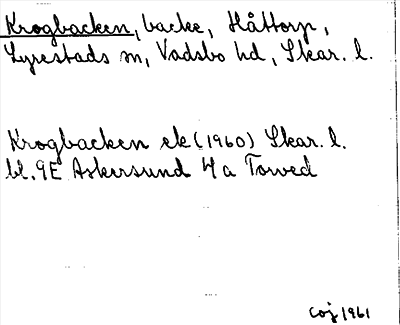 Krogbacken, backe, Håttorp,
Lyrestads sn, Vadsbo hd, Skar. l.
Krogbacken ek (1960) Skar. l.
bl. 9E Askersund 4a Torved
COJ 1961